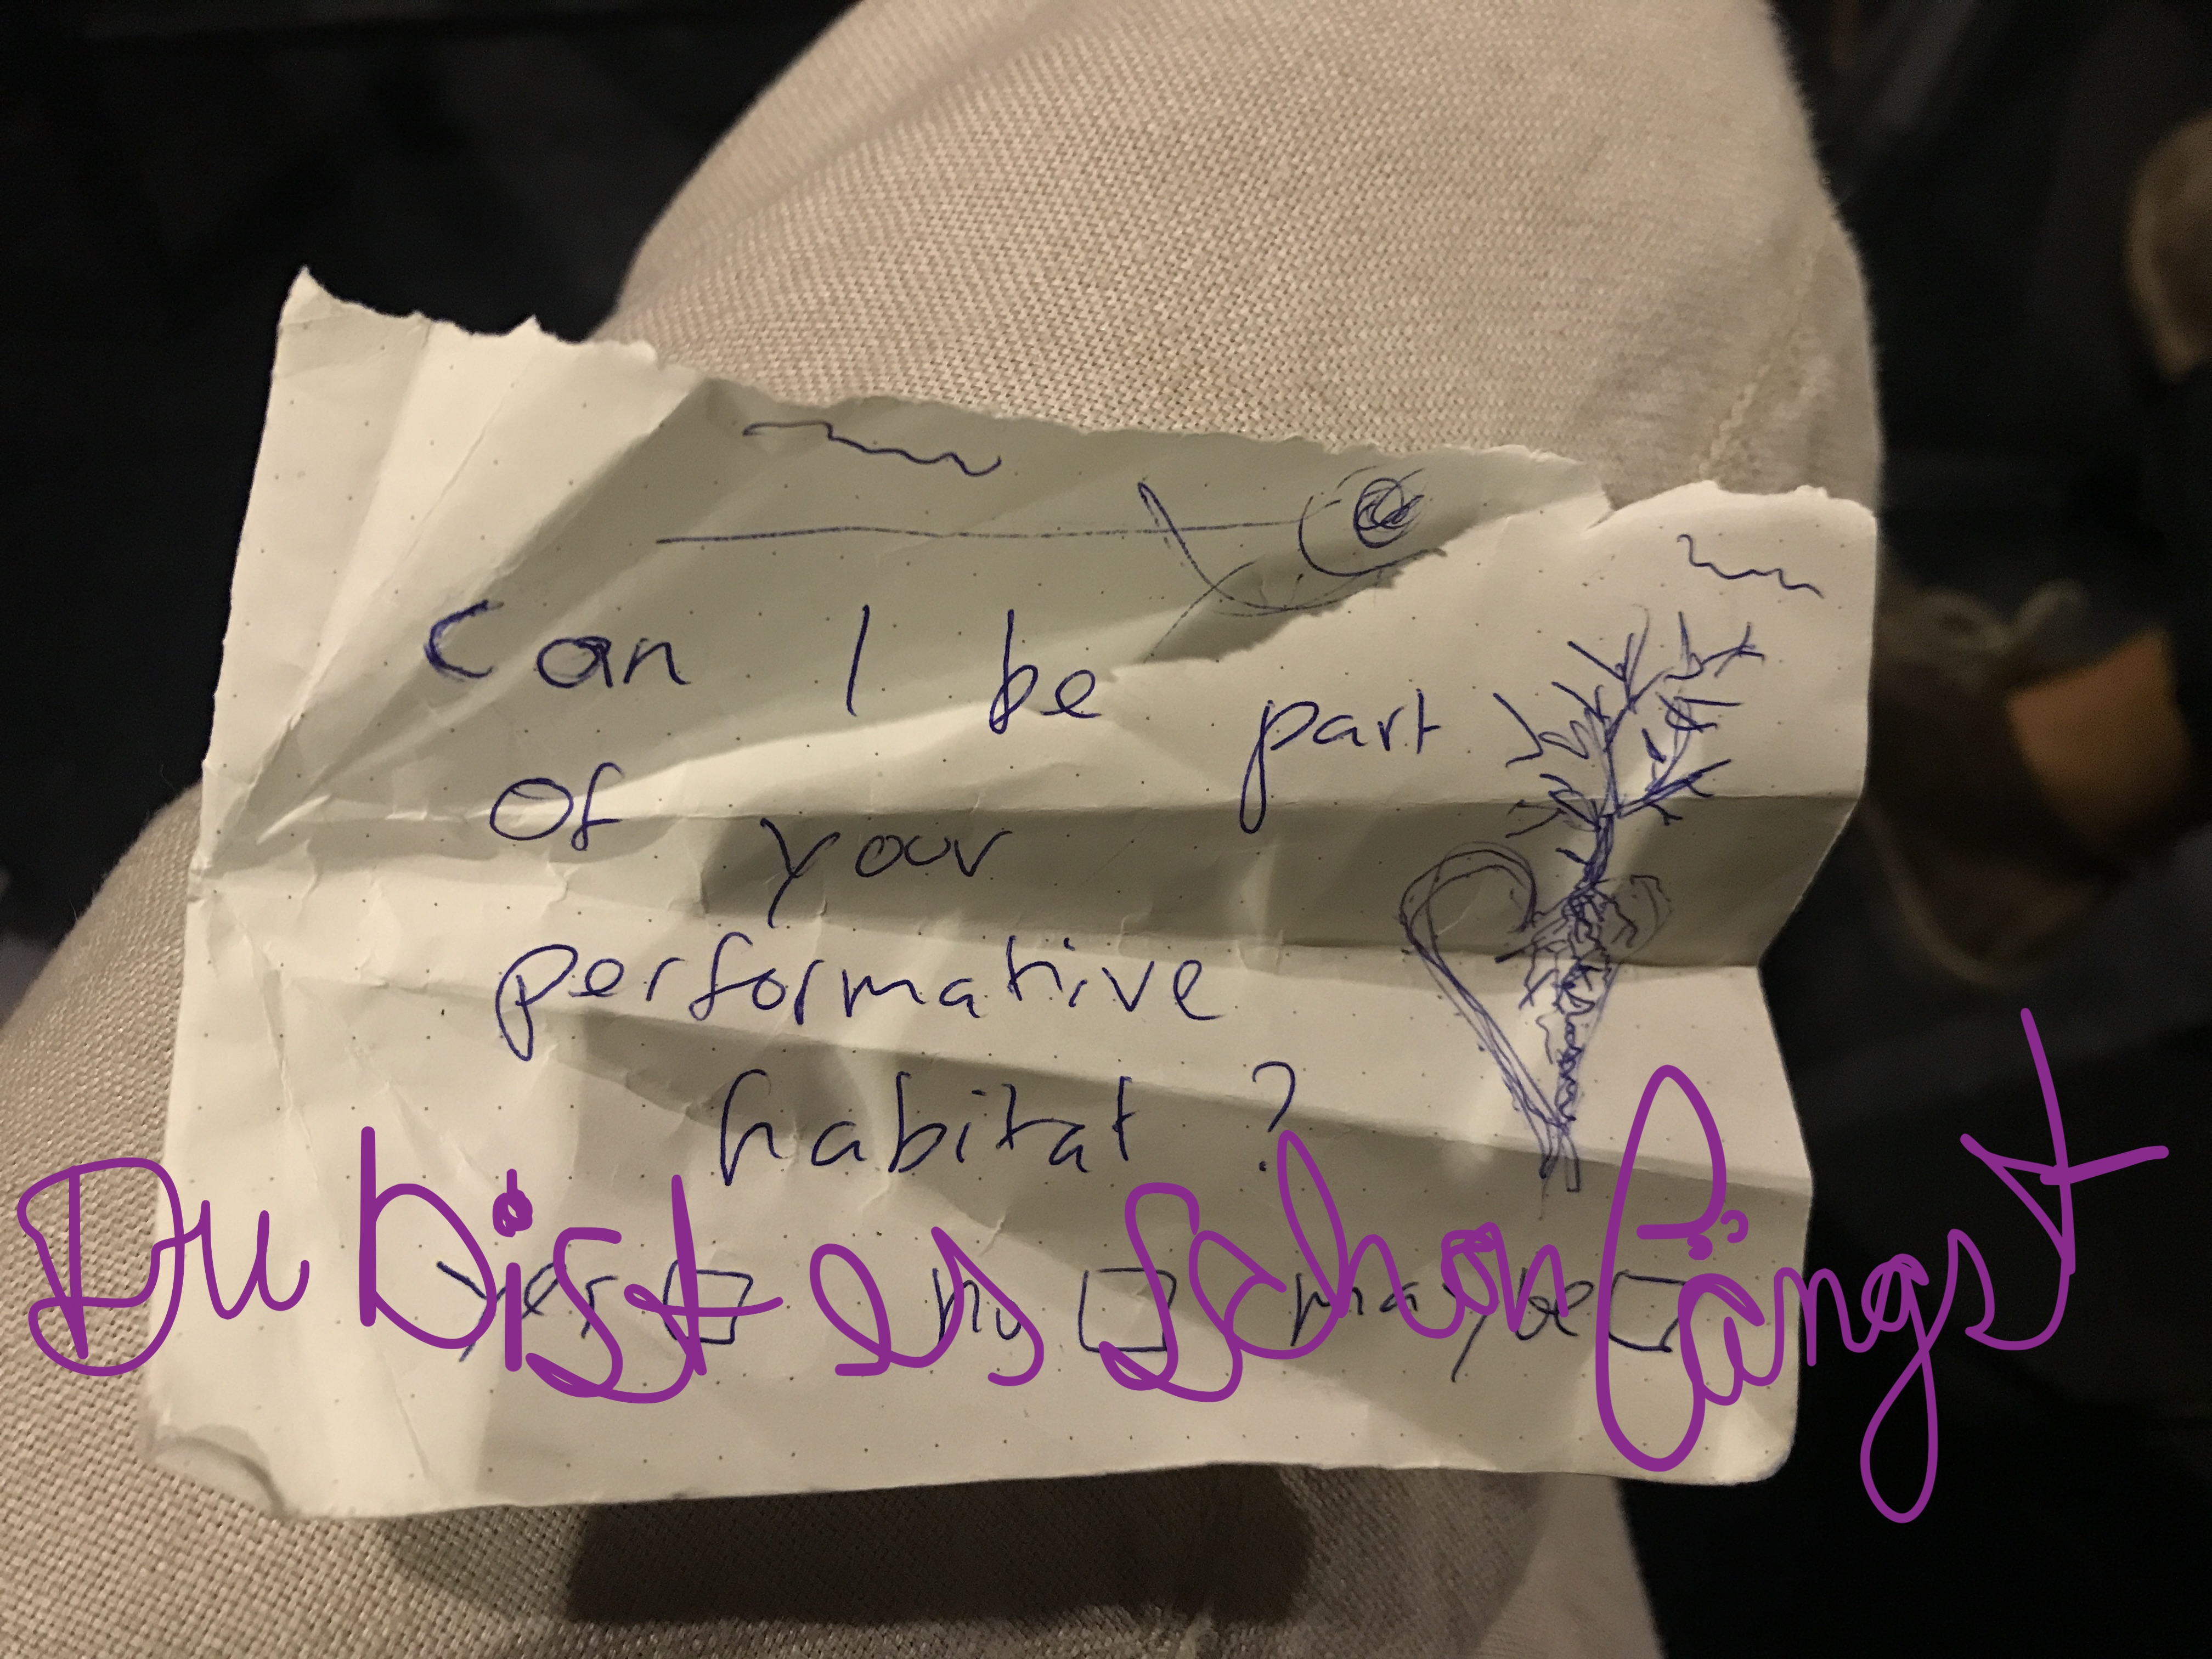 Can I be part
of your
performative
habitat?
yes no maybe
Du bist es schon längst